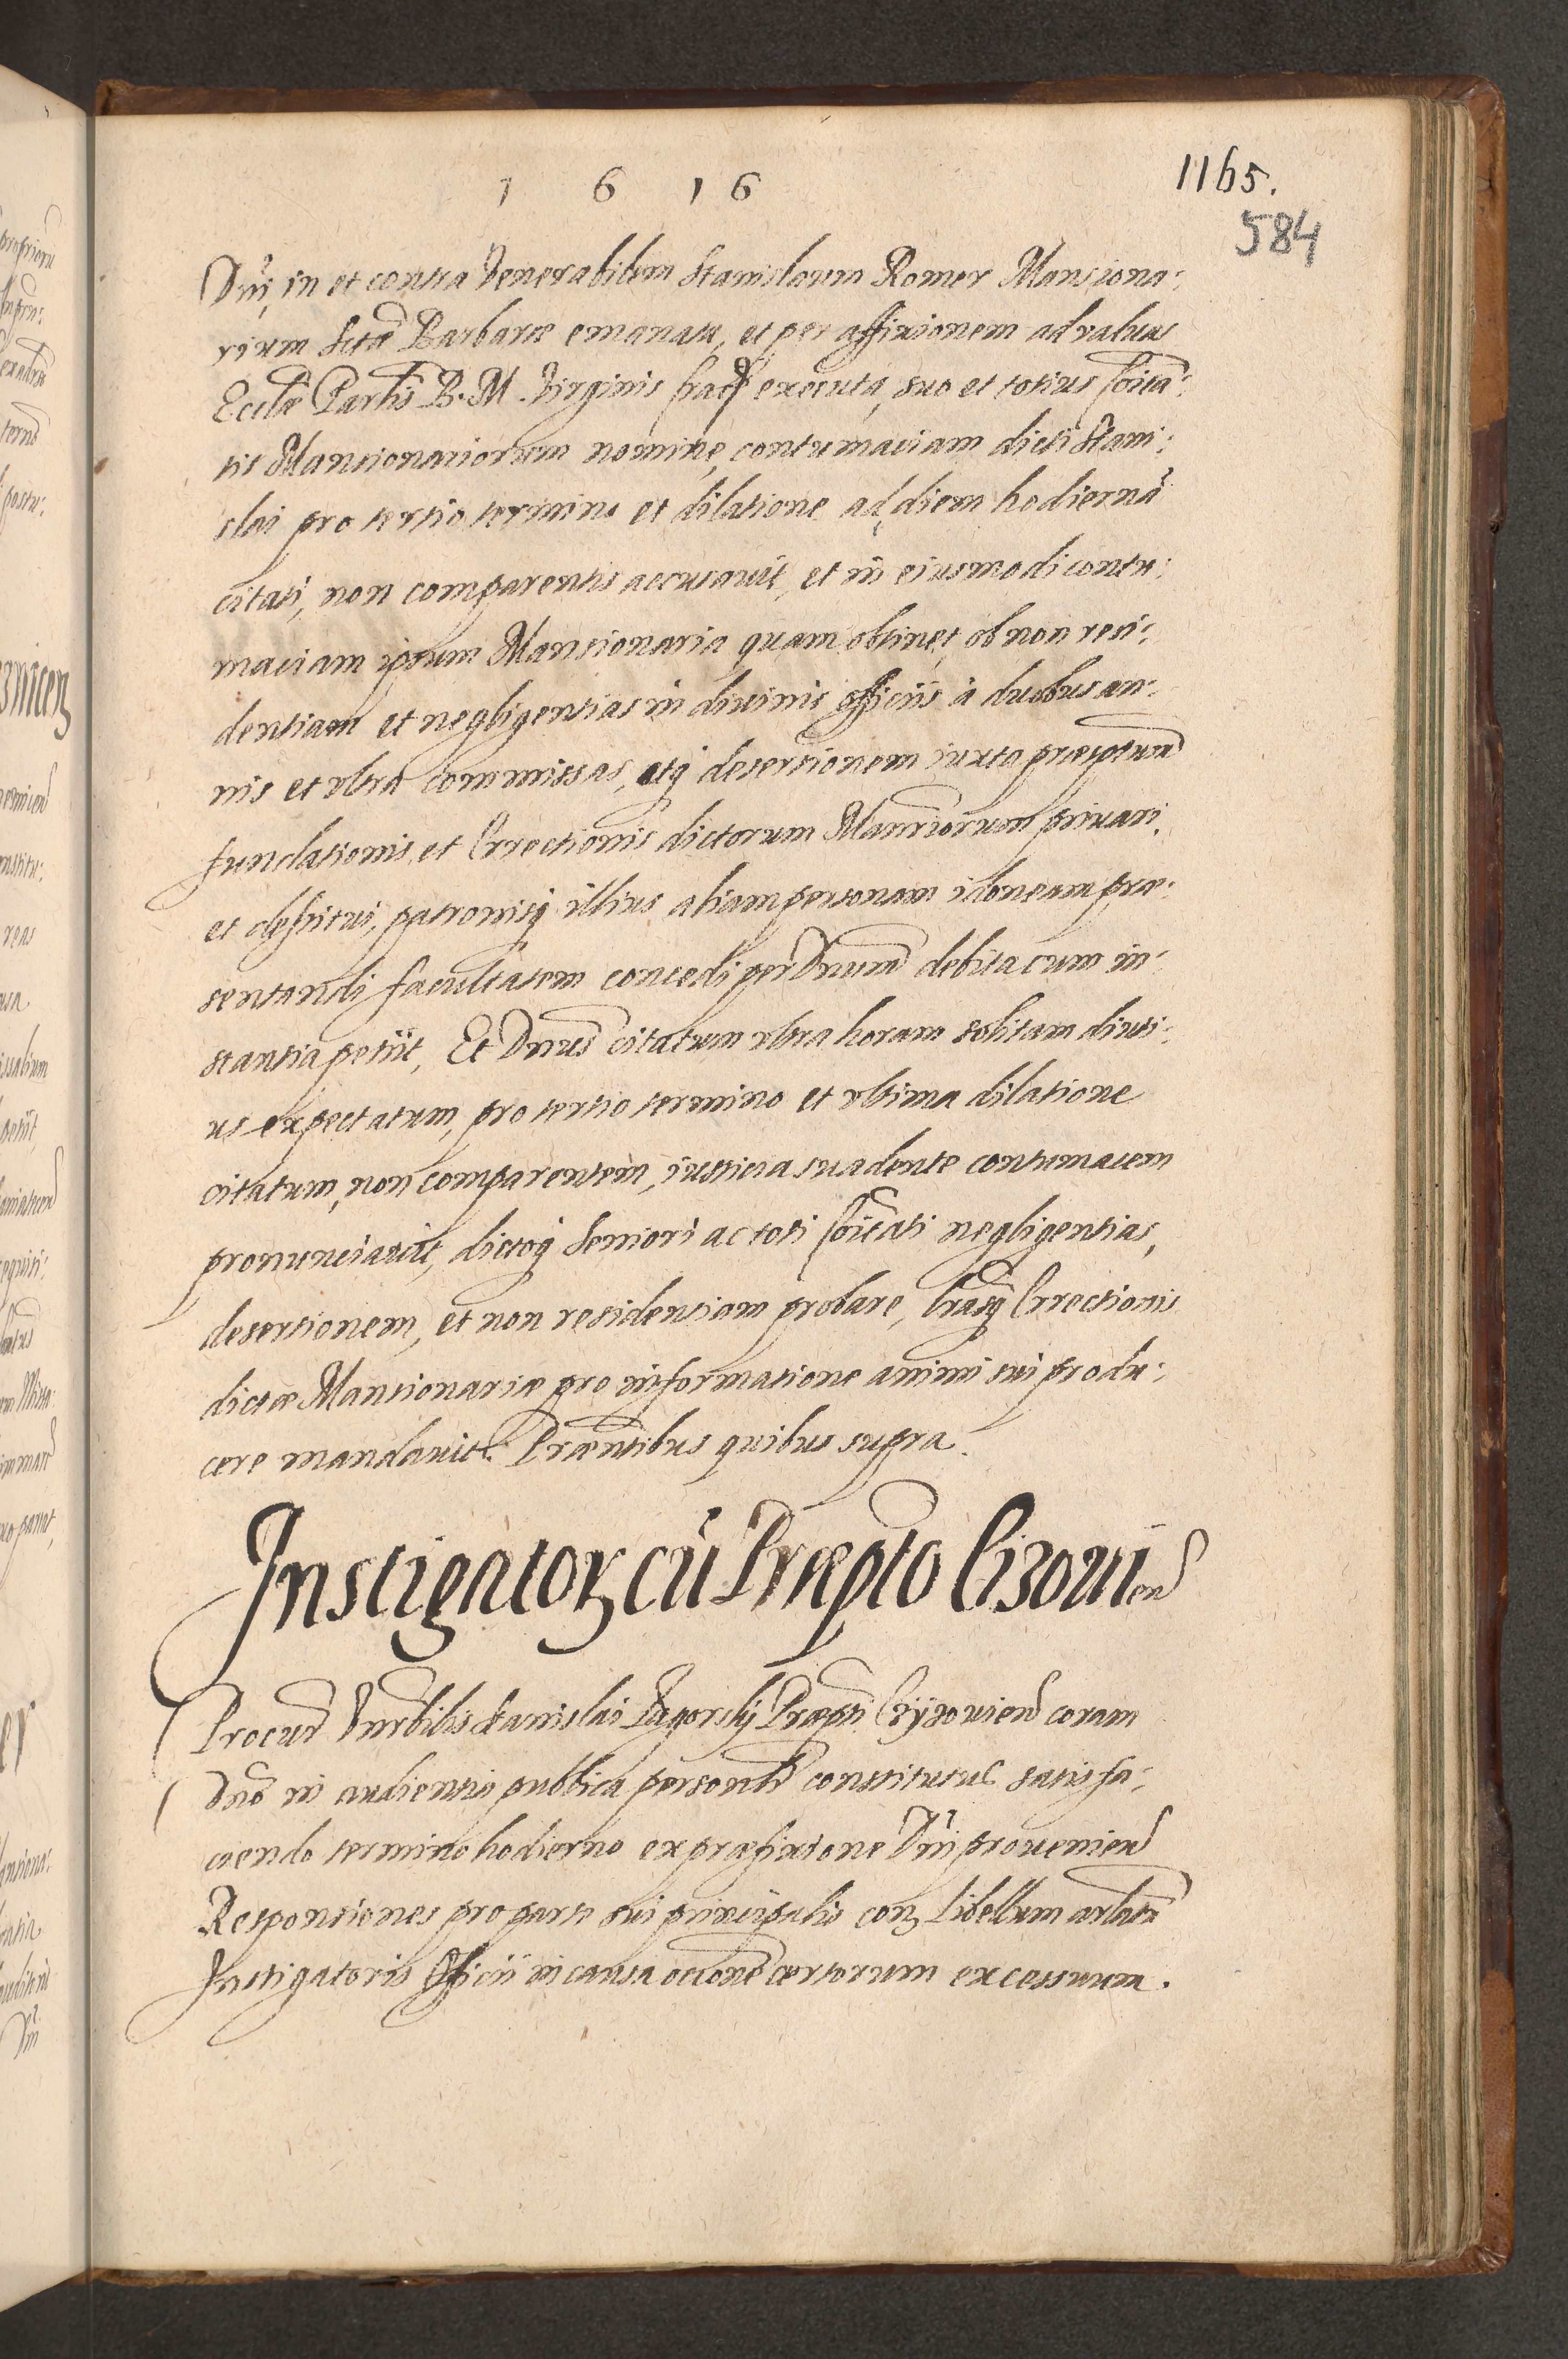 1 6 1 6
1165.
584
Dni, in et contra Venerabilem Stanislaum Romer Mansiona:
rium Sctæ Barbaræ emanata, et per affixionem ad valuas
Ecclæ Parlis B. M. Virginis Crac executa, suo et totius Coita:
tis Mansionariorum nomine, contumaciam dicti Stani:
slai pro tertio termino et dilatione ad diem hodiernã
citati, non comparentis accusauit, et in eiusmodi contu:
maciam ipsum Mansionaria quam obtinet, ob non resi:
dentiam et negligentias in diuinis officiis à duobus an:
nis et vltra commissas, atq desertionem iuxta præsptum
fundationis et Errectionis dictorum Mansriorum priuari,
et destitui, patronisq illius aliam personam idoneam præ:
sentandi facultatem concedi per Dnum debita cum in:
stantia petiit, Et Dnus citatum vltra horam solitam diuti:
us expectatum, pro tertio termino et vltima dilatione
citatum, non comparentem, iusticia suadente contumacem
pronunciauit, dictoq Seniori ac toti Coitati negligentias,
desertionem, et non residentiam probare, Lrasq Errectionis
dictæ Mansionariæ pro informatione animi sui produ:
cere mandauit. Præntibus quibus supra.
Instigator cũ Præpto Cizouien
Procur Vnrbilis Stanislai Zagorskj Præpti Czyzouien coram
Dno in audientia publica personlr constitutus satisfa:
ciendo termino hodierno ex præfixione Dni prouenien
Responsiones pro parte sui principalis con Libellum arlatũ
Instigatoris Officii in causa ocione certorum excessuum.